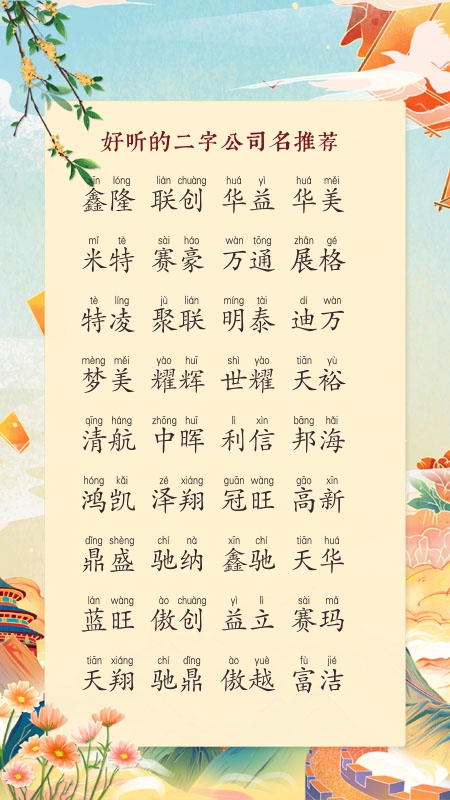 好听的二字公司名推荐
xīn lóng lián chuàng huá yì huá měi
鑫隆 联创 华益 华美
mǐ tè sài háo wàn tōng zhǎn gé
米特 赛豪 万通 展格
tè líng jù lián míng tài dí wàn
特凌 聚联 明泰 迪万
mèng měi yào huī shì yào tiān yù
梦美 耀辉 世耀 天裕
qīng háng zhōng huī lì xìn bāng hǎi
清航 中晖 利信 邦海
hóng kǎi zé xiáng guān wàng gāo xīn
鸿凯 泽翔 冠旺 高新
dǐng shèng chí nà xīn chí tiān huá
鼎盛 驰纳 鑫驰 天华
lán wàng ào chuàng yì lì sài mǎ
蓝旺 傲创 益立 赛玛
tiān xiáng chí dǐng ào yuè fù jié
天翔 驰鼎 傲越 富洁